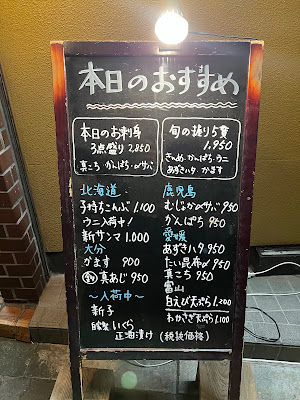 本日のおすすめ
本日のお刺身
3点盛り 2,850
真こち かんぱち 〆サバ
旬の握り5貫
1,950
きんめ・かんぱち・ウニ
あずきハタ・かます
北海道
子持ちこんぶ 1,100
ウニ入荷中!
新サンマ 1,000
大分
かます 900
真あじ 950
〜入荷中〜
新子
自家製 いくら
正油漬け
鹿児島
むじなか〆サバ 950
かんぱち 950
愛媛
あずきハタ 950
たい昆布〆 950
真こち 950
富山
白えび天ぷら 1,200
わかさぎ天ぷら 1,100
(税抜価格)